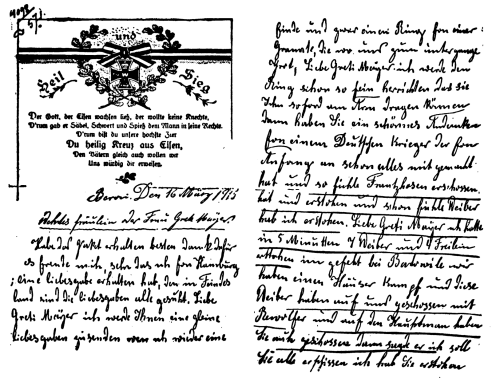 und
Heil Sieg
Der Gott, der Eisen wachsen ließ, der wollte keine Knechte,
D'rum gab er Säbel, Schwert und Spieß dem Mann in seine Rechte.
D'rum bist du unsre höchste Zier
Du heilig Kreuz aus Eisen,
Den Vätern gleich auch wollen wir
Uns würdig dir erweisen.
Den 16 März 1915
fräulein oder Frau Gret Maijer
habe das Paket erhalten besten dank
es freude mich sehr das ich fon Hamburg
eine liebesgabe erhalten hab, den in Feindes
land sind die liebesgaben alle gezählt. Liebe
Greti Maijer ich werde Ihnen eine kleine
liebesgaben zusenden wen ich wieder eine
finde und zwar einen Ring fon einer
Granate, die wo uns zum
Liebe Greti Maijer ich werde den
Ring schon so fein herrichten das sie
Ihn soford am Arm dragen können
dann haben Sie ein schönnes Andenken
fon einem Deutschen Krieger der fon
Anfang an schon alles mit gemacht
hat und so fühle Frantzhosen erschossen
hat und erstochen und schon fühle Weiber
hab ich erstochen. Liebe Greti Maijer ich hatte
in 5 Minutten 7 Weiber und 4
erstochen im gefekt bei wir
haben einen Häuser Kampf und diese
Weiber haben auf uns geschossen mit
Rewolfer und auf den Hauptman haben
Sie auch geschossen dann sagte er ich soll
Sie alle erschissen ich hab Sie erstochen